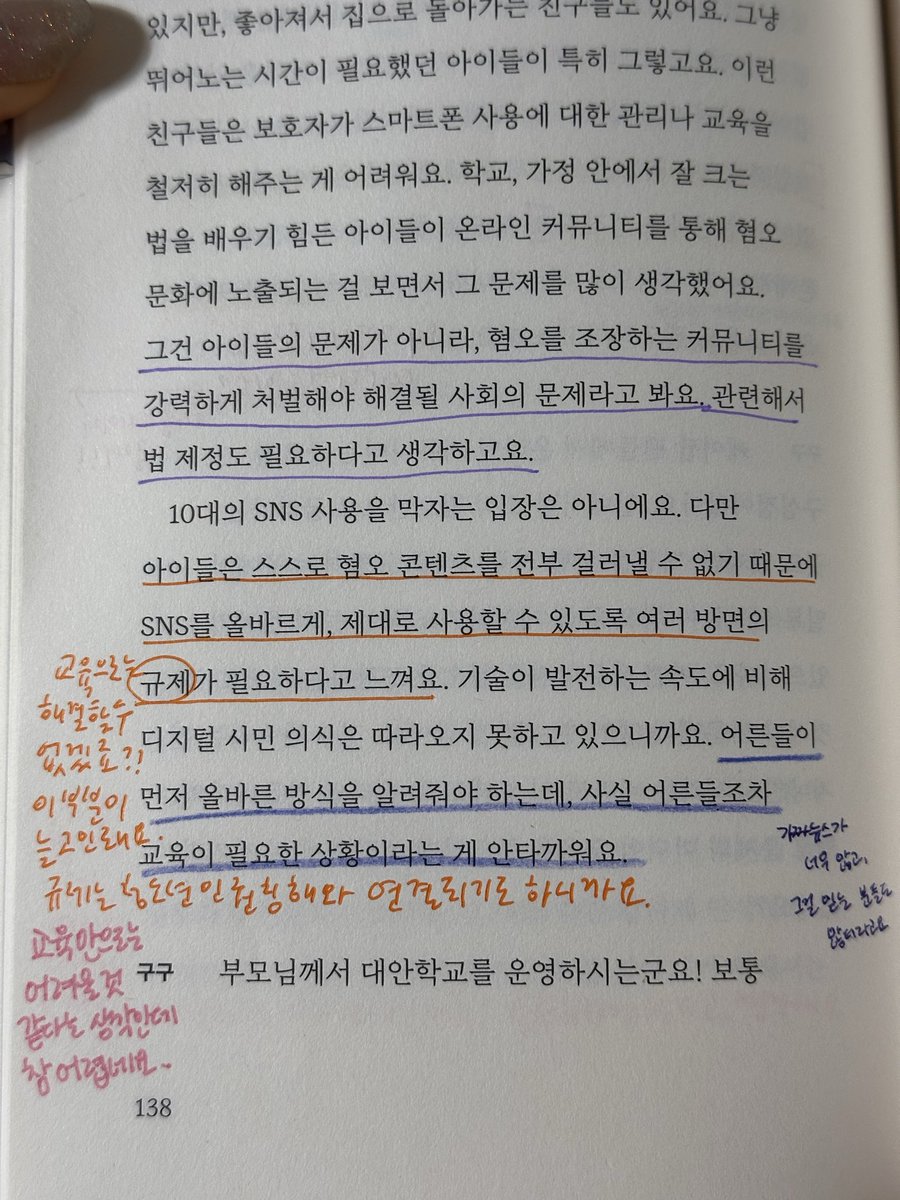 있지만, 좋아져서 집으로 돌아가는 친구들도 있어요. 그냥
뛰어노는 시간이 필요했던 아이들이 특히 그렇고요. 이런
친구들은 보호자가 스마트폰 사용에 대한 관리나 교육을
철저히 해주는 게 어려워요. 학교, 가정 안에서 잘 크는
법을 배우기 힘든 아이들이 온라인 커뮤니티를 통해 혐오
문화에 노출되는 걸 보면서 그 문제를 많이 생각했어요.
그건 아이들의 문제가 아니라, 혐오를 조장하는 커뮤니티를
강력하게 처벌해야 해결될 사회의 문제라고 봐요. 관련해서
법 제정도 필요하다고 생각하고요.
10대의 SNS 사용을 막자는 입장은 아니에요. 다만
아이들은 스스로 혐오 콘텐츠를 전부 걸러낼 수 없기 때문에
SNS를 올바르게, 제대로 사용할 수 있도록 여러 방면의
규제가 필요하다고 느껴요. 기술이 발전하는 속도에 비해
디지털 시민 의식은 따라오지 못하고 있으니까요. 어른들이
먼저 올바른 방식을 알려줘야 하는데, 사실 어른들조차
교육이 필요한 상황이라는 게 안타까워요.
교육으로는
해결할수
없겠죠?!
이부분이
늘고민돼요.
규제는 청소년인권침해와 연결되기도 하니까요.
가짜뉴스가
너무 많고,
그걸 믿는 분들도
많더라고요
교육만으로는
어려울것
같다는 생각인데
참 어렵네요~
구구 부모님께서 대안학교를 운영하시는군요! 보통
138